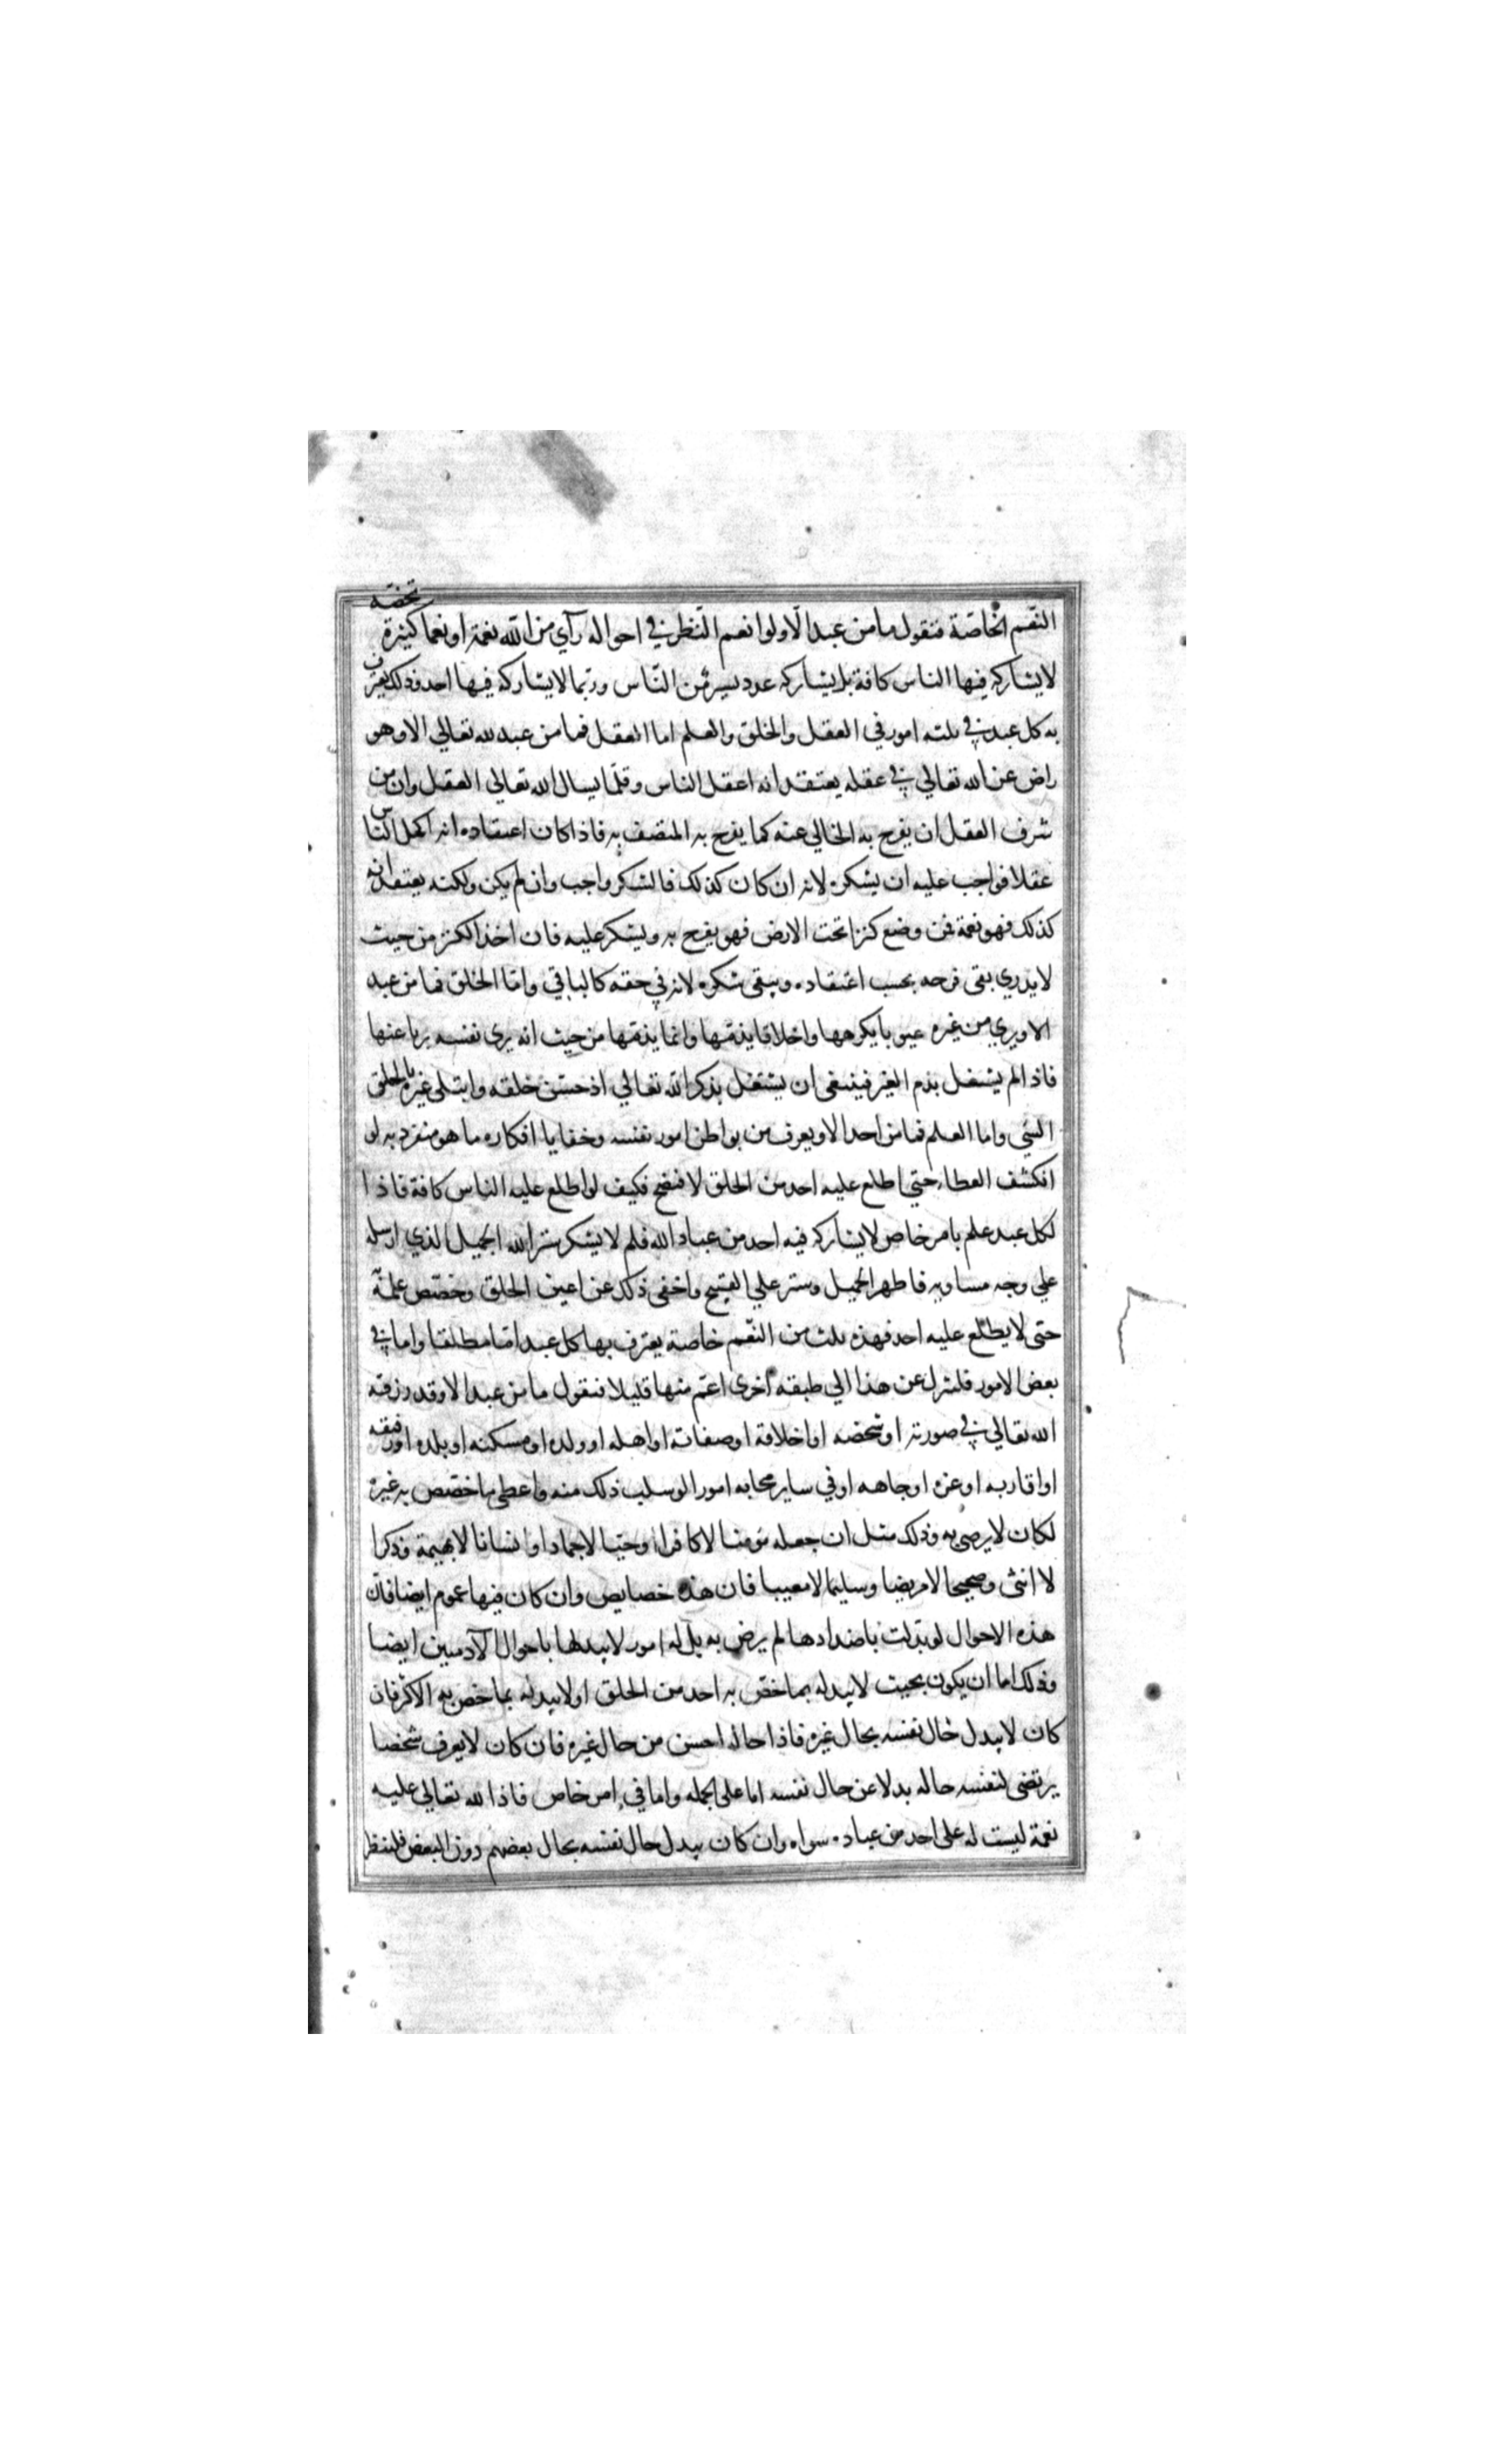 النّعم الخاصّة فنقول ما من عبد الّا ولو انعم النّظر في احواله رآي من الله نعمة او نعما كثيرة تخصّه
لا يشاركه فيها الناس كافة بل يشاركه عدد يسير من النّاس وربّما لا يشاركه فيها احد وذلك يعترف
به كل عبد في ثلثه امور في العقل والخلق والعلم اما العقل فما من عبد لله تعالي الا وهو
راض عن الله تعالي في عقله يعتقد انه اعقل الناس وقلّما يسال الله تعالي العقل وان من
شرف العقل ان يفرح به الخالي عنه كما يفرح به المتصف به فاذا كان اعتقاده انه اكمل النّاس
عقلا فواجب عليه ان يشكره لانه ان كان كذلك فالشكر واجب وان لم يكن ولكنه يعتقد انه
كذلك فهو نعمة فمن وضع كنزا تحت الارض فهو يفرح به ويشكر عليه فان اخذ الكنز من حيث
لا يدري بقى فرحه بحسب اعتقاده ويبقى شكره لانه في حقه كالباقي وامّا الخلق فما من عبد
الا ويري من غيره عيوبا يكرهها واخلاقا يذمّها وانما يذمّها من حيث انه يرى نفسه بريا عنها
فاذا لم يشتغل بذم الغير فينبغى ان يشتغل بذكر الله تعالي اذ حسّن خلقه وابتلى غيره بالخلق
السّي واما العلم فما من احد الا ويعرف من بواطن امور نفسه وخفايا افكاره ما هو منفرد به لو
انكشف الغطاء حتي اطلع عليه احد من الخلق لافتضح فكيف لو اطلع عليه الناس كافة فاذا
لكل عبد علم بامر خاص لا يشاركه فيه احد من عباد الله فلم لا يشكر ستر الله الجميل الذي ارسله
علي وجه مساويه فاظهر الجميل وستر علي القبيح واخفى ذلك عن اعين الخلق وخصّص علمه
حتى لا يطّلع عليه احد فهذه ثلث من النّعم خاصة يعترف بها كل عبد امّا مطلقا واما في
بعض الامور فلننزل عن هذا الي طبقه اخرى اعّم منها قليلا فنقول ما من عبد الا وقد رزقه
الله تعالي في صورته او شخصه او اخلاقه او صفاته او اهله او ولده او مسكنه او بلده او رفيقه
او اقاربه او عزه او جاهه او في ساير محابه امورا لو سلب ذلك منه واعطى ما خصّص به غيره
لكان لا يرضى به وذلك مثل ان جعله مؤمنا لا كافرا وحيّا لا جمادا وانسانا لا بهيمة وذكرا
لا انثى وصحيحا لا مريضا وسليما لا معيبا فان هذه خصايص وان كان فيها عموم ايضا فانّ
هذه الاحوال لو بدّلت باضدادها لم يرض به بل له امور لا يبدلها باحوال الآدميين ايضا
وذلك اما ان يكون بحيث لا يبدله بما خصّ به احد من الخلق او لا يبدله بما خص به الاكثر فان
كان لا يبدل حال نفسه بحال غيره فاذا حاله احسن من حال غيره فان كان لا يعرف شخصا
يرتضى لنفسه حاله بدلا عن حال نفسه اما على الجمله واما في امر خاص فاذا لله تعالي عليه
نعمة ليست له على احد من عباده سواه وان كان يبدل حال نفسه بحال بعضهم دون البعض فلينظر